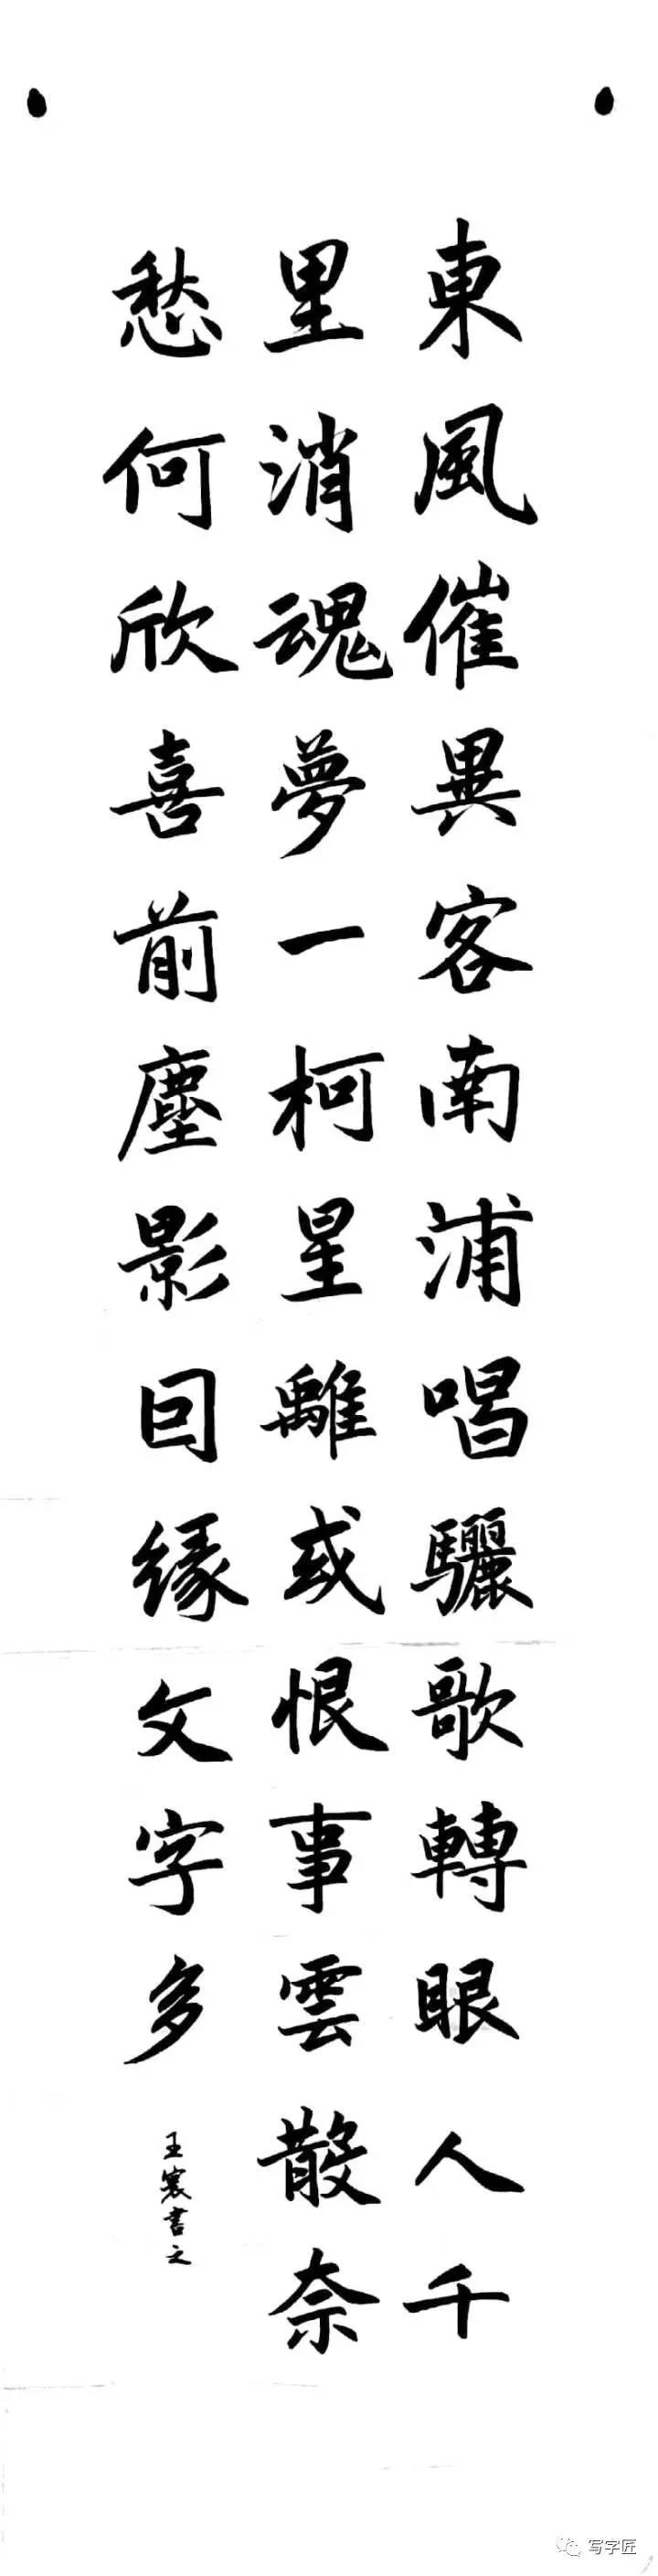 東風催異客南浦唱驪歌轉眼人千
里消魂夢一柯星離或恨事雲散奈
愁何欣喜前塵影囙緣文字多
王寰書之
写字匠